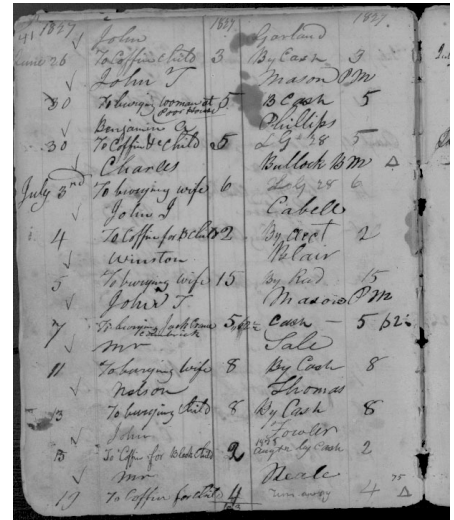 41 1827 1827 1827
John Garland
June 26 To Coffin Child 3 By Cash 3
John T Mason PM
30 To burying woman at Poor House 5 B Cash 5
Benjamin Phillips
30 To Coffin Child 5 28 5
Charles Bullock BM
July 3rd To burying wife 6 28 6
John J Cabell
4 To Coffin for B Child 2 By acct 2
Winston Blair
5 To burying wife 15 By 15
John T Mason PM
7 To burying Jack 5,62½ Cash — 5,62½
Mr Sale
11 To burying wife 8 By Cash 8
Nelson Thomas
13 To burying Child 8 By Cash 8
John Fowler
15 To Coffin for Black Child 2 by Cash 2
Mr Neale
19 To Coffin for Child 4 run away 4